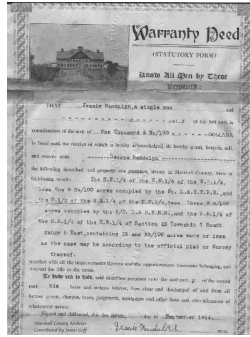 Warranty Deed
(STATUTORY FORM)
Know All Men by These
Presents:
THAT Jessie Randolph, a single man and
part y of the first part, in
consideration of the sum of One Thousand & No/100 DOLLARS
in hand paid, the receipt of which is hereby acknowledged, do hereby grant, bargain, sell,
and convey unto George Randolph
the following described real property and premises, situate in Marshall County, State of
Oklahoma, to-wit: The S.W.1/4 of the N.W.1/4
less One & 84/100 acres occupied by the St. L.&S.F.R.R., and
occupied by the St. L.& S.F.R.R., and the
of the N.W.1/4 of Section 15 Township 7 South
range 6 East, containing and 56/100 acres more or less
as the case may be according to the official plat or Survey
thereof.
together with all the improvements thereon and the appurtenances thereunto belonging, and
warrant the title to the same.
To have and to hold, said described premises unto the said part y of the second
part his heirs and assigns forever, free, clear and discharged of and from all
former grants, charges, taxes, judgments, mortgages and other liens and encumbrances of
whatsoever nature.
Signed and delivered, this the day of September 1914.
Marshall County Archives
Contributed by
Jessie Randolph